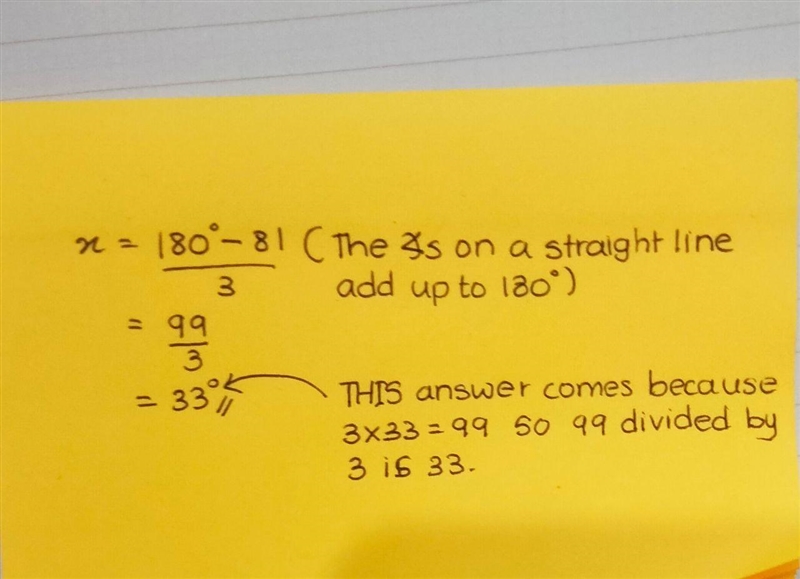 x = 180° - 81 (The ∡s on a straight line
3 add up to 180°)
= 99
3
= 33° // THIS answer comes because
3×33 = 99 so 99 divided by
3 is 33.